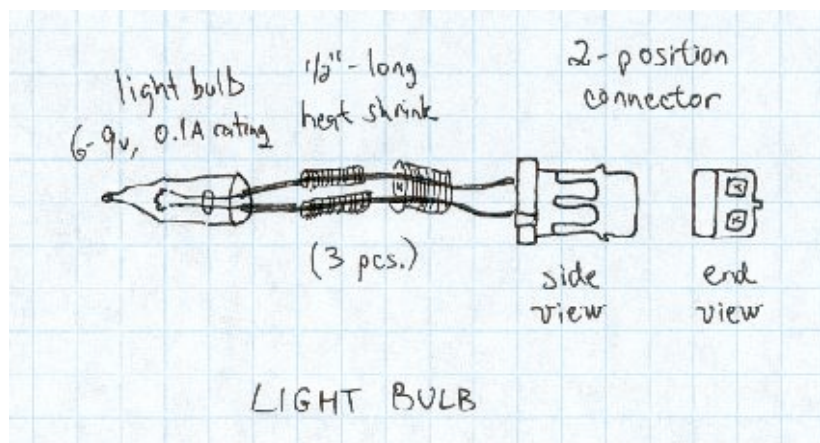 light bulb
6-9v, 0.1A rating
1/2"-long
heat shrink
(3 pcs.)
2-position
connector
side
view
end
view
LIGHT BULB